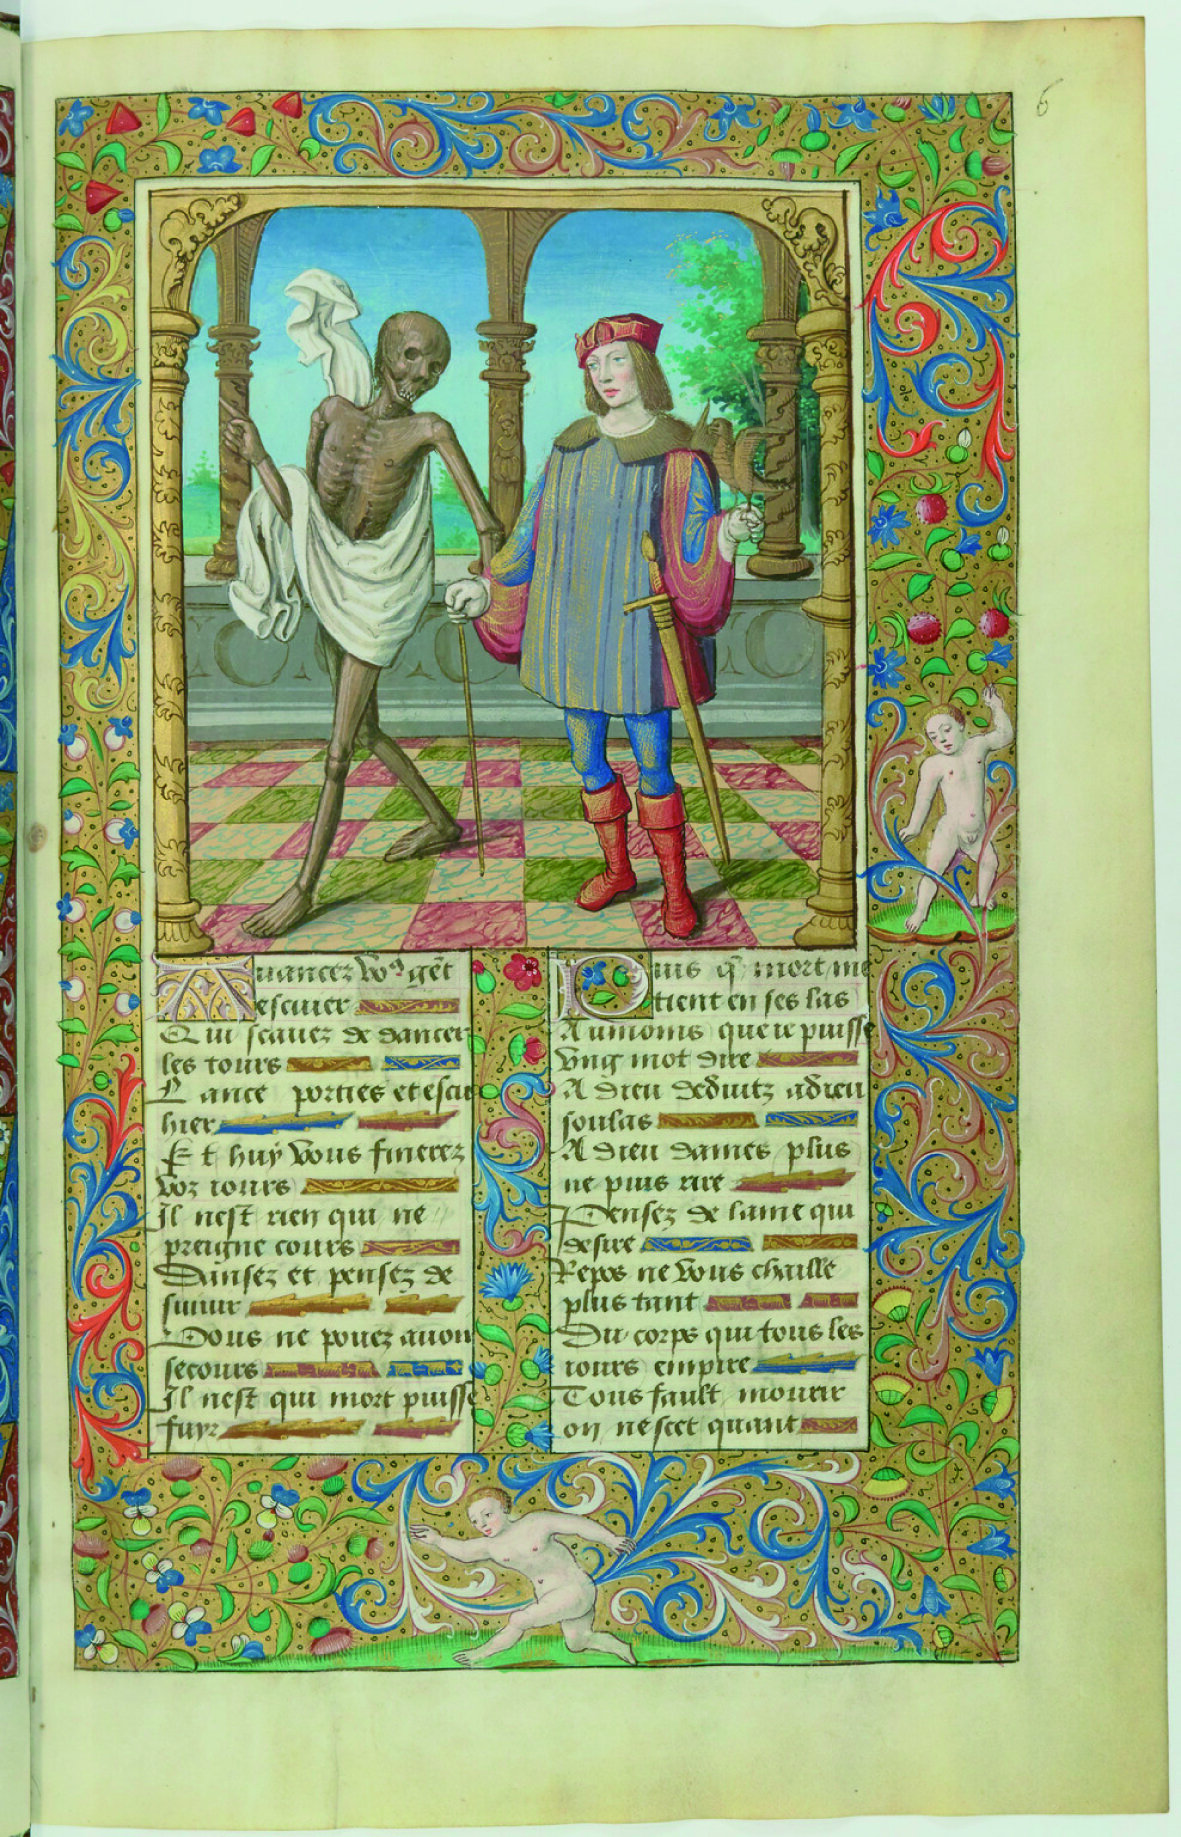 6
Auancez vo9 gẽt
escuier
Qui scauez de dancer
les tours
Lance porties et escu
hier
Et huy vous finerez
voz iours
Il nest rien qui ne
preigne cours
Dansez et pensez de
suiuir
Vous ne pouez auoir
secours
Il nest qui mort puisse
fuyr
Puis q̃ mort me
tient en ses las
Aumoins que ie puisse
vng mot dire
A dieu deduitz adieu
soulas
A dieu dames plus
ne puis rire
Pensez de lame qui
desire
Repos ne vous chaille
plus tant
Du corps qui tous les
iours empire
Tous fault mourir
on ne scet quant